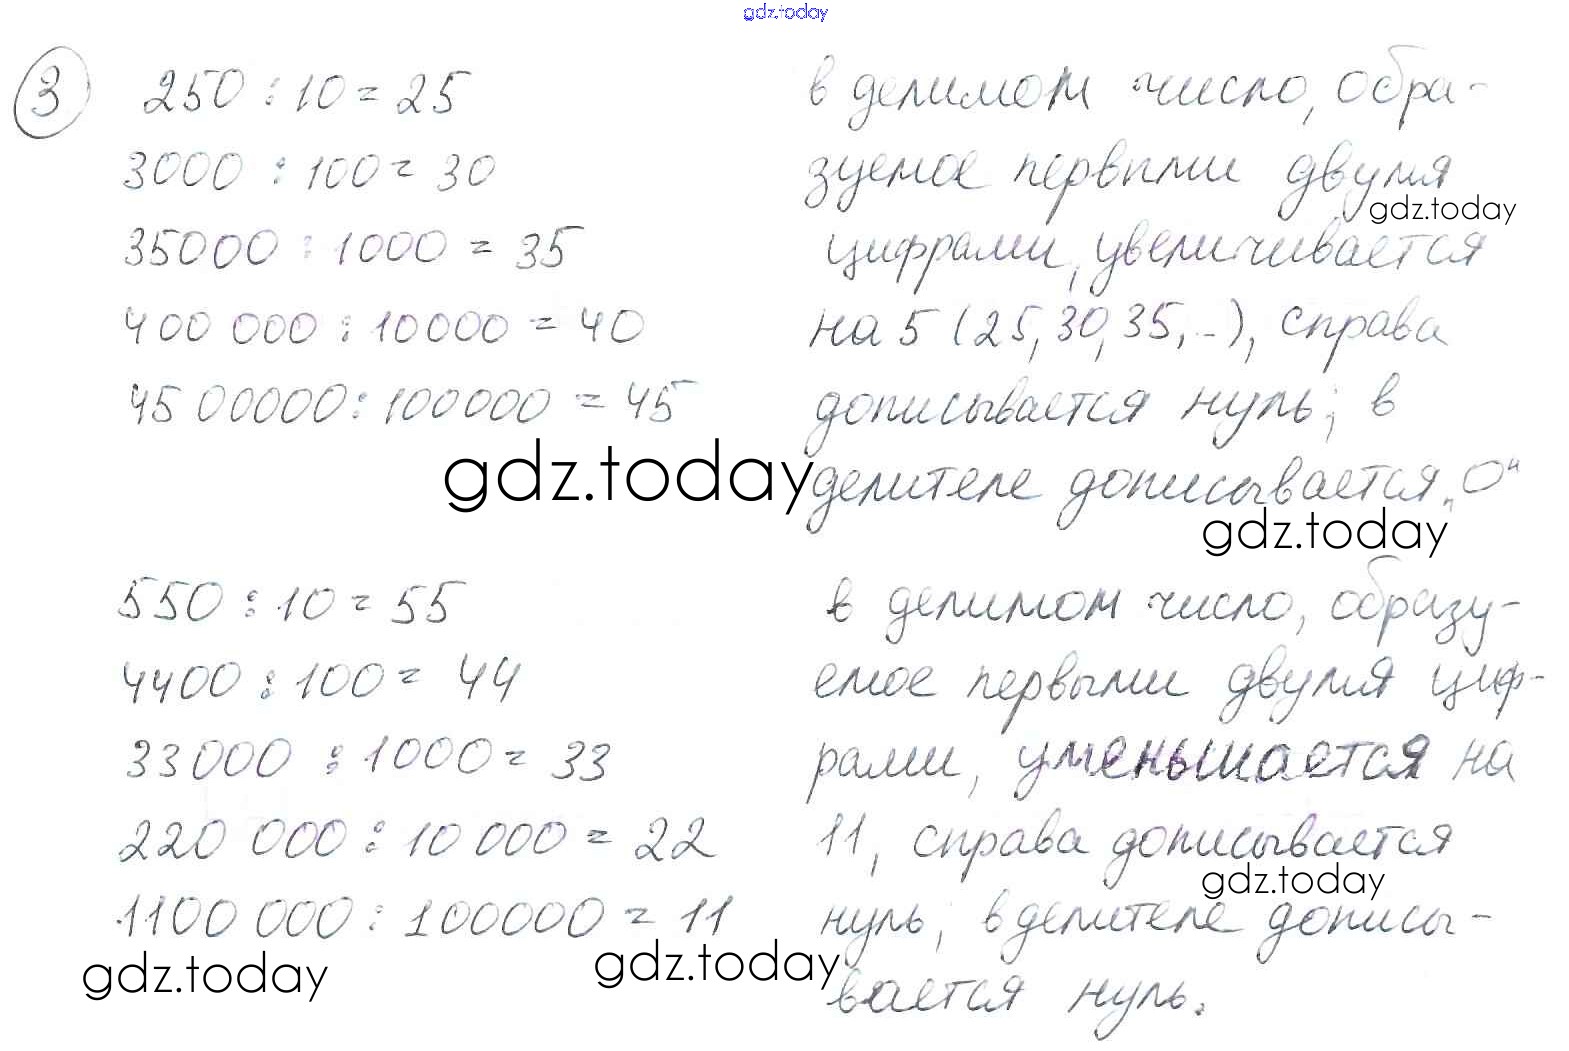 gdz.today
3
250 : 10 = 25
3000 : 100 = 30
35000 : 1000 = 35
400 000 : 10000 = 40
4500000 : 100000 = 45
в делимом число, обра-
зуемое первыми двумя
gdz.today
цифрами, увеличивается
на 5 (25, 30, 35, ...), справа
дописывается нуль; в
делителе дописывается „0“
gdz.today
gdz.today
550 : 10 = 55
4400 : 100 = 44
33000 : 1000 = 33
220 000 : 10 000 = 22
1100 000 : 100000 = 11
в делимом число, образу-
емое первыми двумя циф-
рами, уменьшается на
11, справа дописывается
gdz.today
нуль; в делителе дописы-
вается нуль.
gdz.today
gdz.today